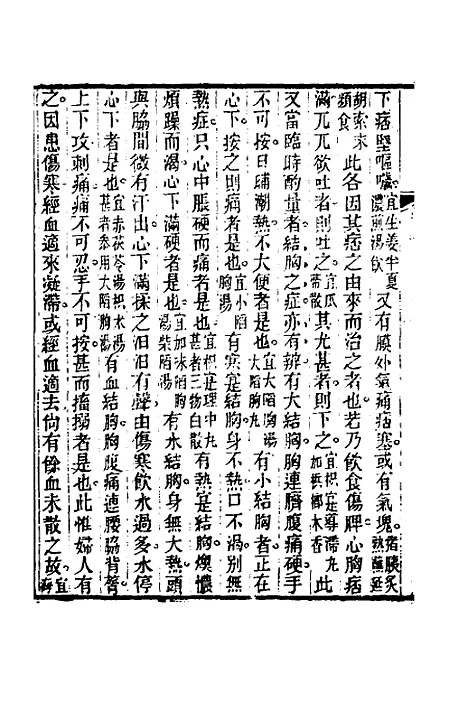 下痞堅嘔噦宜生姜半夏濃煎湯飲又有膜外氣痛痞塞或有氣塊猪胰炙熟蘸延
胡索末頻食此各因其痞之由來而治之者也若乃飲食傷脾心胸痞
滿兀兀欲吐者則吐之宜瓜蒂散其尤甚者則下之宜枳壳導滯丸加檳榔木香此
又當臨時酌量者結胸之症亦有辨有大結胸胸連臍腹痛硬手
不可按日晡潮熱不大便者是也宜大陷胸湯大陷胸丸有小結胸者正在
心下按之則痛者是也宜小陷胸湯有寒寔結胸身不熱口不渴別無
熱症只心中脹硬而痛者是也宜枳寔理中丸甚者三物白散有熱寔結胸煩懊憹
煩躁而渴心下滿硬者是也宜加味陷胸湯柴陷湯有水結胸身無大熱頭
與脇間微有汗出心下滿揉之汩汩有聲由傷寒飲水過多水停
心下者是也宜赤茯苓湯枳朮湯甚者參用大陷胸湯有血結胸胸腹痛連腰脇背膂
上下攻刺痛痛不可忍手不可按甚而搐搦者是也此惟婦人有
之因患傷寒經血適來凝滯或經血適去尚有餘血未散之故宜